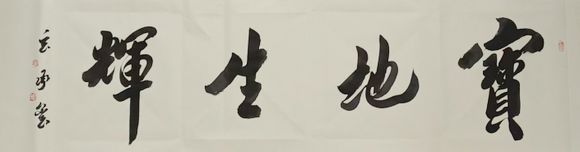 寶地生輝